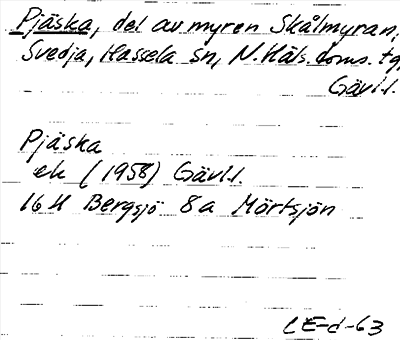 Pjäska, del av myren Skålmyran,
Svedja, Hassela sn, N. Häls. doms. tg,
Gävl.l.
Pjäska
ek (1958) Gävl.l.
16 H Bergsjö 8a Mörtsjön
LE-d-63